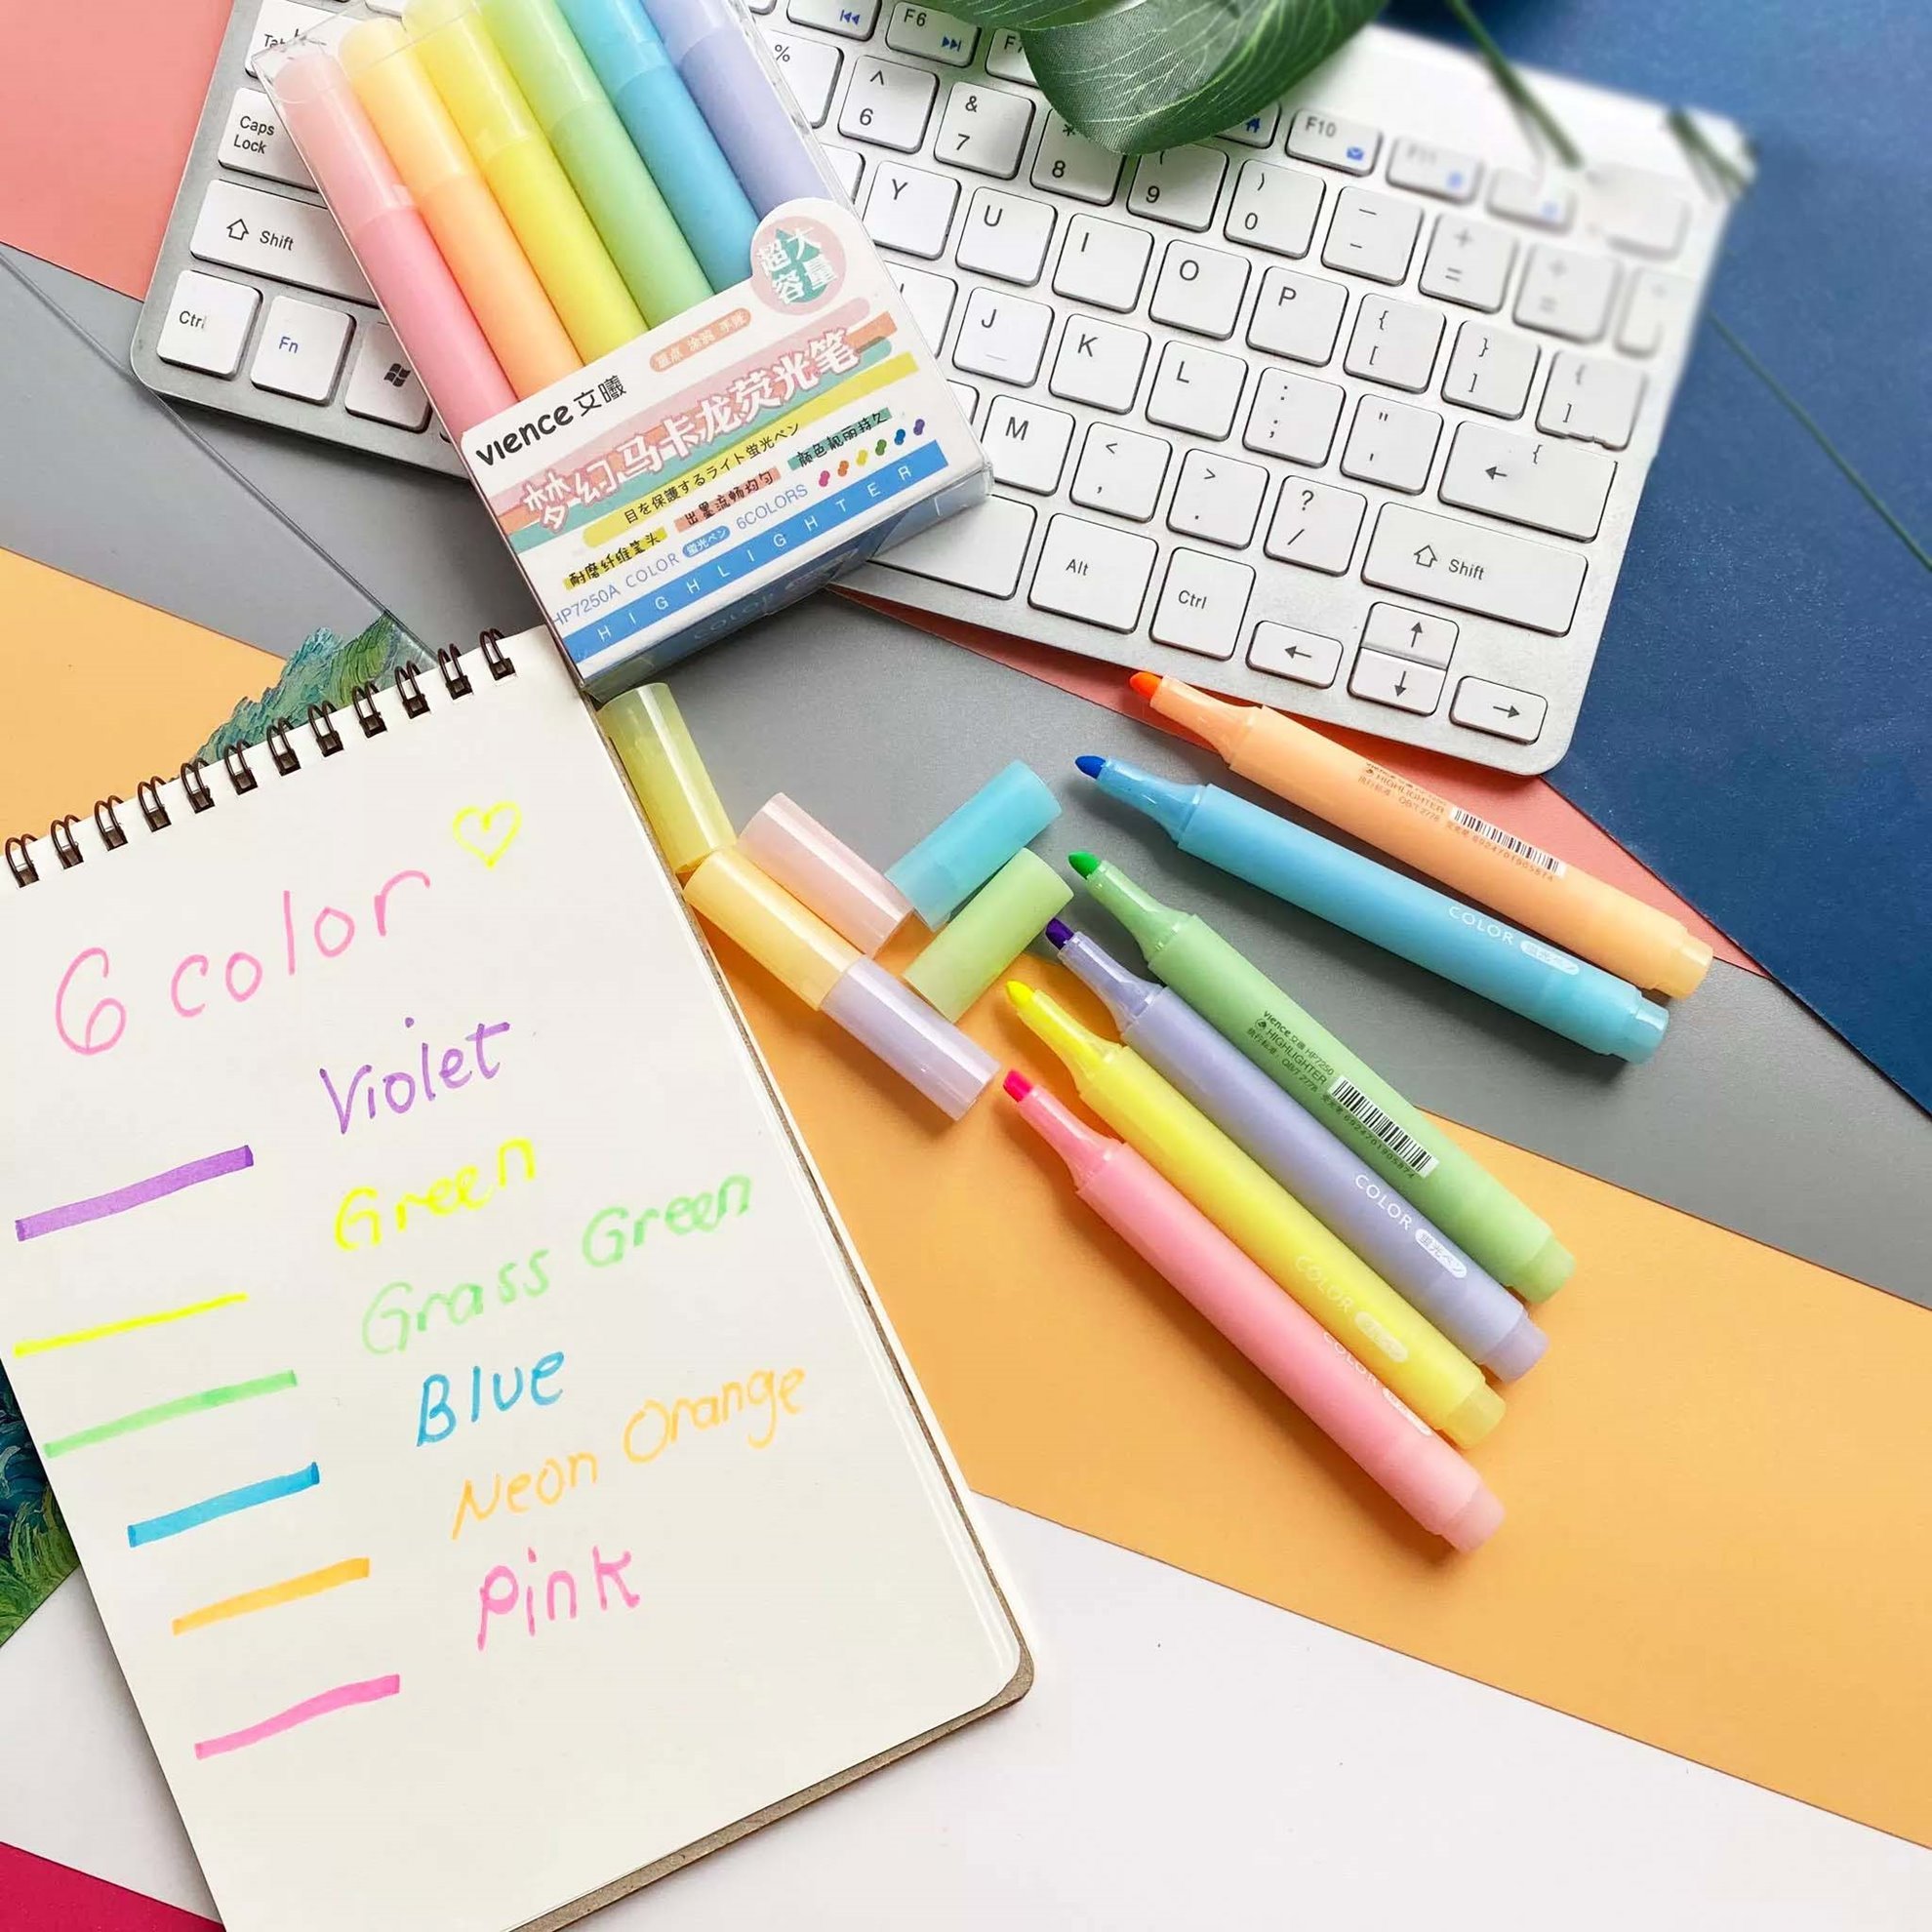 Caps Lock
Shift
Ctrl
Fn
F6
F10
%
^ 6
& 7
* 8
( 9
) 0
Y
U
I
O
P
{ [
} ]
J
K
L
: ;
" '
M
< ,
> .
? /
Alt
Ctrl
Shift
超大
容量
vience 文曦
梦幻马卡龙荧光笔
目を保護するライト蛍光ペン
耐磨纤维笔头 出墨流畅均匀 颜色靓丽持久
HP7250A COLOR 蛍光ペン 6COLORS
HIGHLIGHTER
6 color
Violet
Green
Grass Green
Blue
Neon Orange
Pink
vience
HIGHLIGHTER
COLOR
vience 文曦 HP7250
HIGHLIGHTER
执行标准: QB/T 2778
6924701905874
COLOR 蛍光ペン
COLOR
COLOR